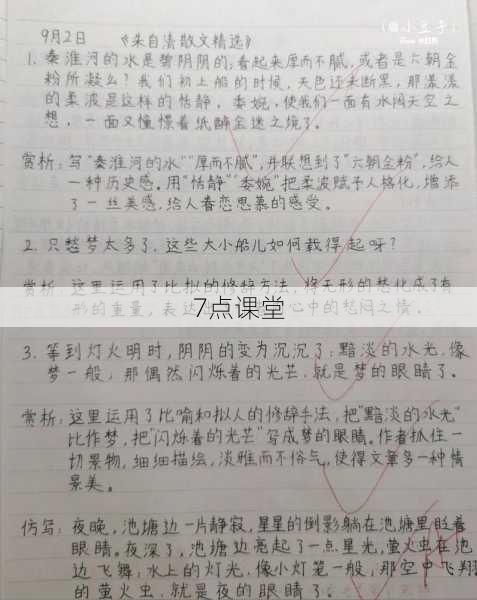 小豆子
9月2日 《朱自清散文精选》
1. 秦淮河的水是碧阴阴的;看起来厚而不腻,或者是六朝金
粉所凝么?我们初上船的时候,天色还未断黑,那漾漾
的柔波是这样的恬静,委婉,使我们一面有水阔天空之
想,一面又憧憬着纸醉金迷之境了。
赏析:写“秦淮河的水”“厚而不腻”,并联想到了“六朝金粉”,给人
一种历史感。用“恬静”“委婉”把柔波赋予人格化,增添
了一丝美感,给人眷恋思慕的感受。
2. 只愁梦太多了,这些大小船儿如何载得起呀?
赏析:这里运用了比拟的修辞方法,将无形的愁化成了有
形的重量,表达出 心中的愁闷之情。
7点课堂
3. 等到灯火明时,阴阴的变为沉沉了:黯淡的水光,像
梦一般,那偶然闪烁着的光芒,就是梦的眼睛了。
赏析:这里运用了比喻和拟人的修辞手法,把“黯淡的水光”
比作梦,把“闪烁着的光芒”写成梦的眼睛。作者抓住一
切景物,细细描绘,淡雅而不俗气,使得文章多一种情
景美。
仿写:夜晚,池塘边一片静寂,星星的倒影躺在池塘里眨着
眼睛。夜深了,池塘边亮起了一点星光,萤火虫在池
边飞舞;水上的灯光,像小灯笼一般,那空中飞翔
的萤火虫,就是夜的眼睛了。